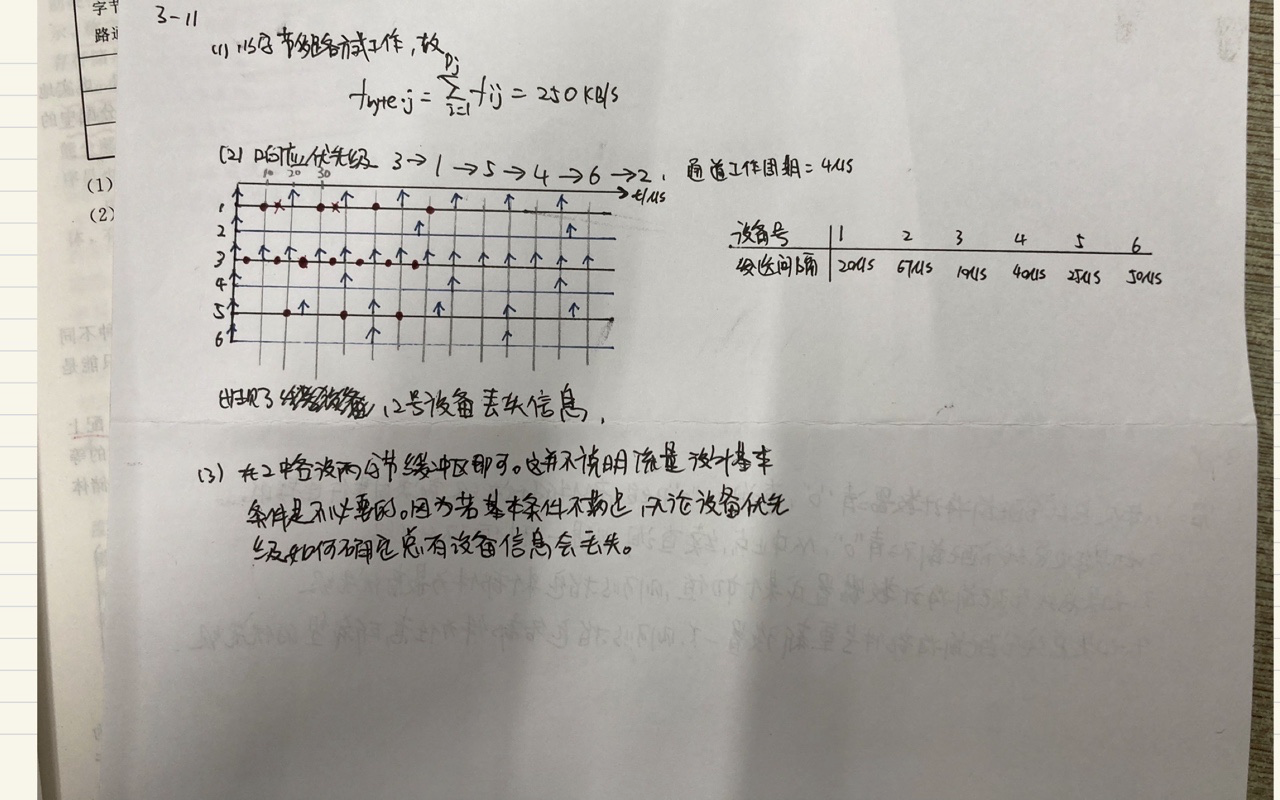 字节
路通
(1)
(2)
3-11
(1) 以字节多路方式工作，故
fbyte·j = Σ(i=1, Pj) fij = 250 KB/s
(2) 响应优先级 3→1→5→4→6→2. 通道工作周期=4μs
10 20 30
t/μs
1
2
3
4
5
6
设备号 1 2 3 4 5 6
发送间隔 20μs 67μs 10μs 40μs 25μs 50μs
，2号设备丢失信息.
(3) 在2中各设两个字节缓冲区即可。这并不说明流量设计基本
条件是不必要的。因为若基本条件不满足，无论设备优先
级如何确定总有设备信息会丢失。